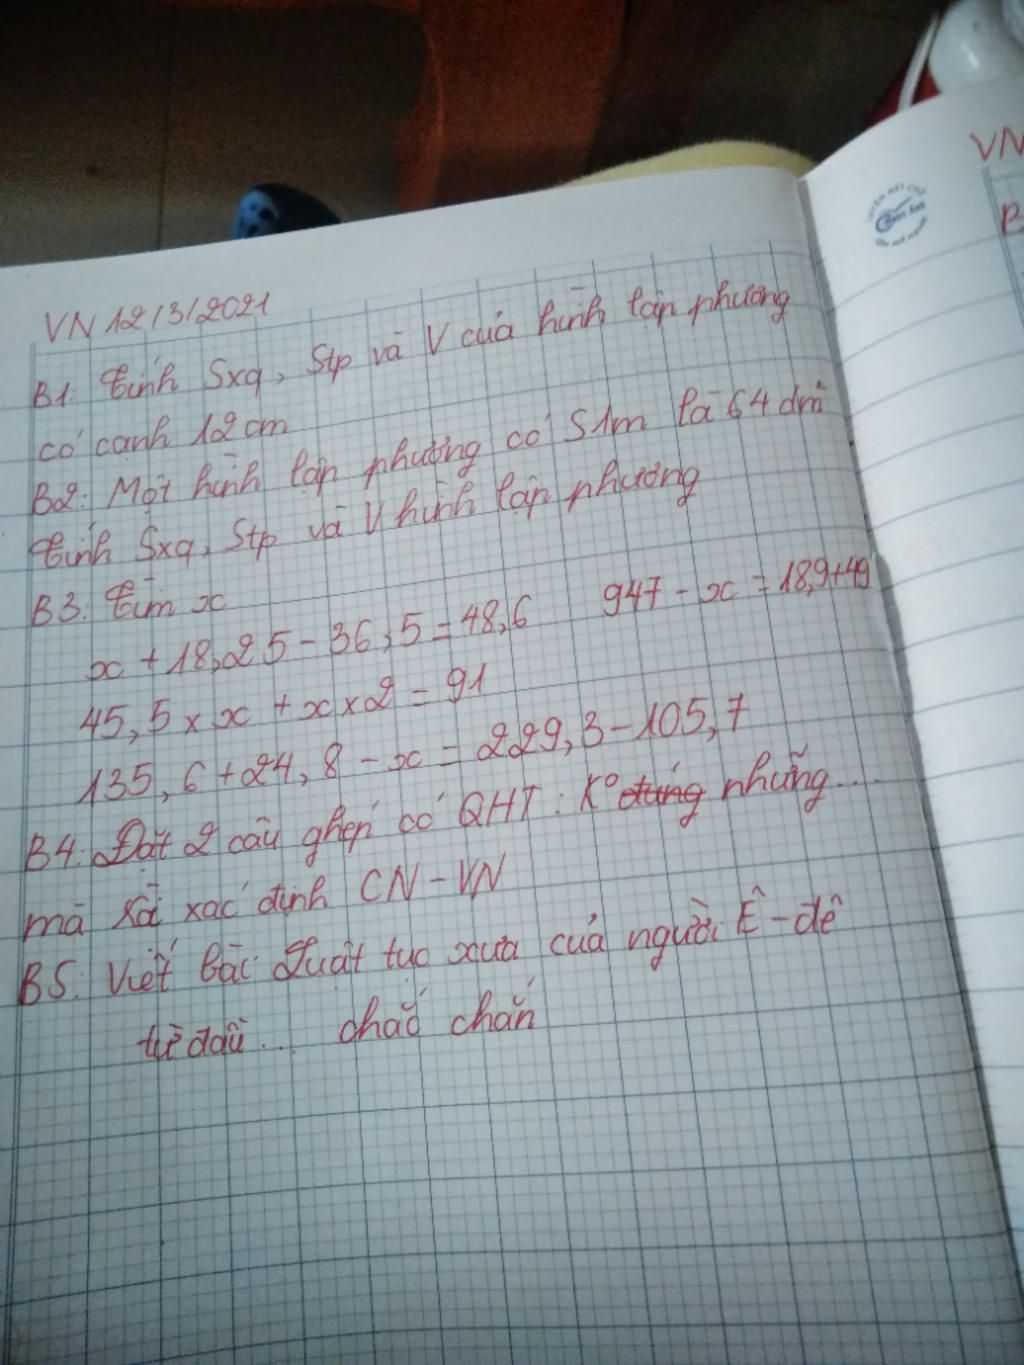 VN 12/3/2021
B1. tính Sxq, Stp và V của hình lập phương
có cạnh 12cm
B2: Một hình lập phương có S1m là 64 dm²
tính Sxq, Stp và V hình lập phương
B3. tìm x
x + 18,25 - 36,5 = 48,6 947 - x = 18,9+49
45,5 x x + x x 2 = 91
135,6 + 24,8 - x = 229,3 - 105,7
B4. Đặt 2 câu ghép có QHT: K° những ...
mà rồi xác định CN - VN
B5: Viết bài: Luật tục xưa của người Ê-đê
từ đầu ... chắc chắn
VN
B